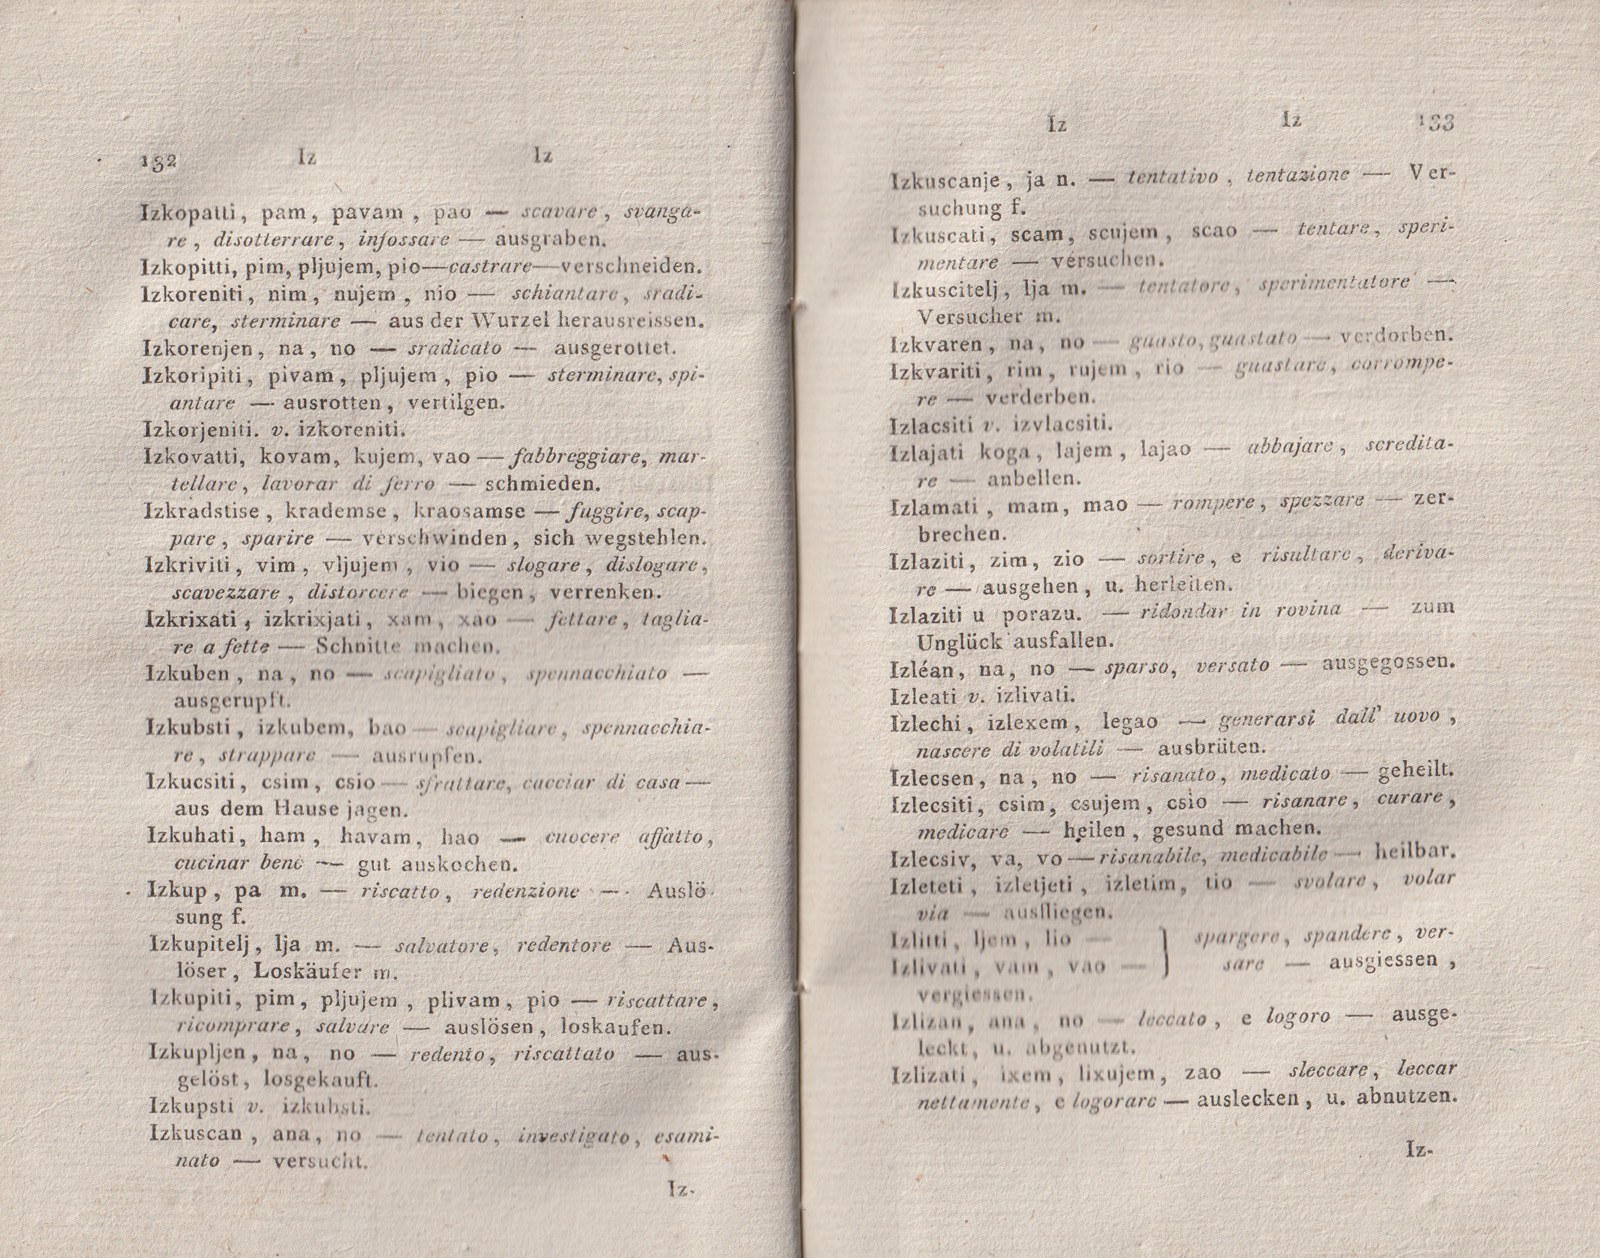 132 Iz Iz
Izkopatti, pam, pavam, pao — scavare, svanga-
re, disotterrare, infossare — ausgraben.
Izkopitti, pim, pljujem, pio—castrare—verschneiden.
Izkoreniti, nim, nujem, nio — schiantare, sradi-
care, sterminare — aus der Wurzel herausreissen.
Izkorenjen, na, no — sradicato — ausgerottet.
Izkoripiti, pivam, pljujem, pio — sterminare, spi-
antare — ausrotten, vertilgen.
Izkorjeniti. v. izkoreniti.
Izkovatti, kovam, kujem, vao — fabbreggiare, mar-
tellare, lavorar di ferro — schmieden.
Izkradstise, krademse, kraosamse — fuggire, scap-
pare, sparire — verschwinden, sich wegstehlen.
Izkriviti, vim, vljujem, vio — slogare, dislogare,
scavezzare, distorcere — biegen, verrenken.
Izkrixati, izkrixjati, xam, xao — fettare, taglia-
re a fette — Schnitte machen.
Izkuben, na, no — scapigliato, spennacchiato —
ausgerupft.
Izkubsti, izkubem, bao — scapigliare, spennacchia-
re, strappare — ausrupfen.
Izkucsiti, csim, csio — sfrattare, cacciar di casa —
aus dem Hause jagen.
Izkuhati, ham, havam, hao — cuocere affatto,
cucinar bene — gut auskochen.
Izkup, pa m. — riscatto, redenzione — Auslö-
sung f.
Izkupitelj, lja m. — salvatore, redentore — Aus-
löser, Loskäufer m.
Izkupiti, pim, pljujem, plivam, pio — riscattare,
ricomprare, salvare — auslösen, loskaufen.
Izkupljen, na, no — redento, riscattato — aus-
gelöst, losgekauft.
Izkupsti v. izkubsti.
Izkuscan, ana, no — tentato, investigato, esami-
nato — versucht.
Iz-
Iz Iz 133
Izkuscanje, ja n. — tentativo, tentazione — Ver-
suchung f.
Izkuscati, scam, scujem, scao — tentare, speri-
mentare — versuchen.
Izkuscitelj, lja m. — tentatore, sperimentatore —
Versucher m.
Izkvaren, na, no — guasto, guastato — verdorben.
Izkvariti, rim, rujem, rio — guastare, corrompe-
re — verderben.
Izlacsiti v. izvlacsiti.
Izlajati koga, lajem, lajao — abbajare, scredita-
re — anbellen.
Izlamati, mam, mao — rompere, spezzare — zer-
brechen.
Izlaziti, zim, zio — sortire, e risultare, deriva-
re — ausgehen, u. herleiten.
Izlaziti u porazu. — ridondar in rovina — zum
Unglück ausfallen.
Izléan, na, no — sparso, versato — ausgegossen.
Izleati v. izlivati.
Izlechi, izlexem, legao — generarsi dall' uovo,
nascere di volatili — ausbrüten.
Izlecsen, na, no — risanato, medicato — geheilt.
Izlecsiti, csim, csujem, csio — risanare, curare,
medicare — heilen, gesund machen.
Izlecsiv, va, vo — risanabile, medicabile — heilbar.
Izleteti, izletjeti, izletim, tio — svolare, volar
via — ausfliegen.
Izlitti, ljem, lio — } spargere, spandere, ver-
Izlivati, vam, vao — } sare — ausgiessen,
vergiessen.
Izlizan, ana, no — leccato, e logoro — ausge-
leckt, u. abgenutzt.
Izlizati, ixem, lixujem, zao — sleccare, leccar
nettamente, e logorare — auslecken, u. abnutzen.
Iz-